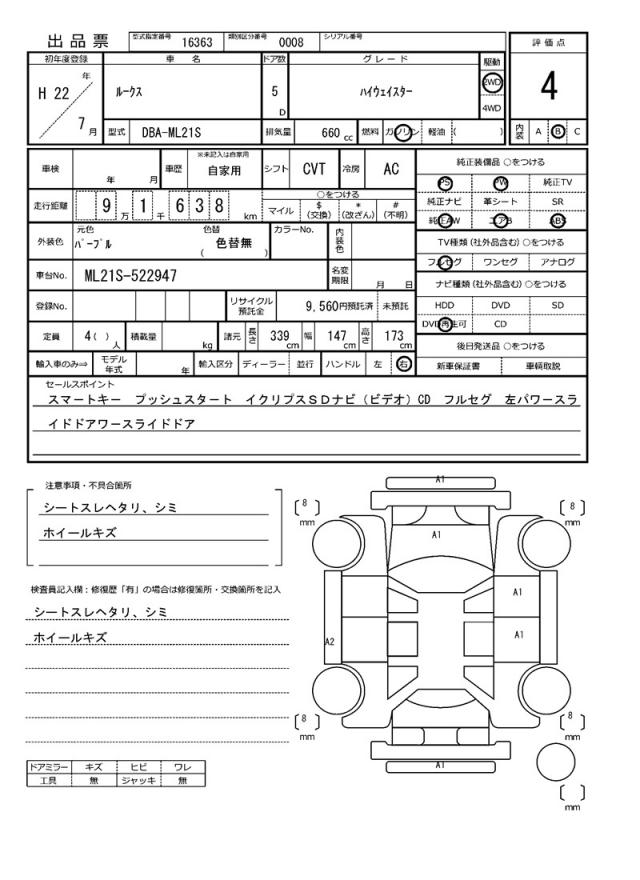 出品票 型式指定番号 16363 類別区分番号 0008 シリアル番号
評価点
4
内装 A B C
初年度登録 車名 ドア数 グレード 駆動
H 22 年 7 月 ルークス 5 D ハイウェイスター 2WD 4WD
型式 DBA-ML21S 排気量 660 cc 燃料 ガソリン 軽油 ( )
車検 年 月 車歴 ※未記入は自家用 自家用 シフト CVT 冷房 AC
走行距離 9 万 1 千 6 3 8 km
○をつける
マイル $(交換) *(改ざん) #(不明)
外装色 元色 パープル 色替 ( 色替無 ) カラーNo. 内装色
車台No. ML21S-522947 名変期限 月 日
登録No. リサイクル預託金 9,560円預託済 未預託
定員 4( ) 人 積載量 kg 諸元 長さ 339 cm 幅 147 cm 高さ 173 cm
輸入車のみ⇒ モデル年式 年 輸入区分 ディーラー 並行 ハンドル 左 右
純正装備品 ○をつける
PS PW 純正TV
純正ナビ 革シート SR
純正AW エアB ABS
TV種類(社外品含む)○をつける
フルセグ ワンセグ アナログ
ナビ種類(社外品含む)○をつける
HDD DVD SD
DVD再生可 CD
後日発送品 ○をつける
新車保証書 車輌取説
セールスポイント
スマートキー プッシュスタート イクリプスSDナビ(ビデオ)CD フルセグ 左パワースラ
イドドアワースライドドア
注意事項・不具合箇所
シートスレヘタリ、シミ
ホイールキズ
検査員記入欄:修復歴「有」の場合は修復箇所・交換箇所を記入
シートスレヘタリ、シミ
ホイールキズ
ドアミラー キズ ヒビ ワレ
工具 無 ジャッキ 無
A1
8 mm
8 mm
A1
A1
A1
A2
8 mm
8 mm
A1
mm